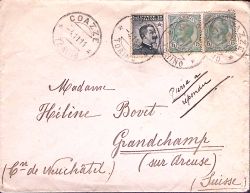 COAZZE
TORINO
Madame
Hélène Bovet
Grandchamp
(sur Areuse)
(Cn de Neuchâtel)
Suisse)